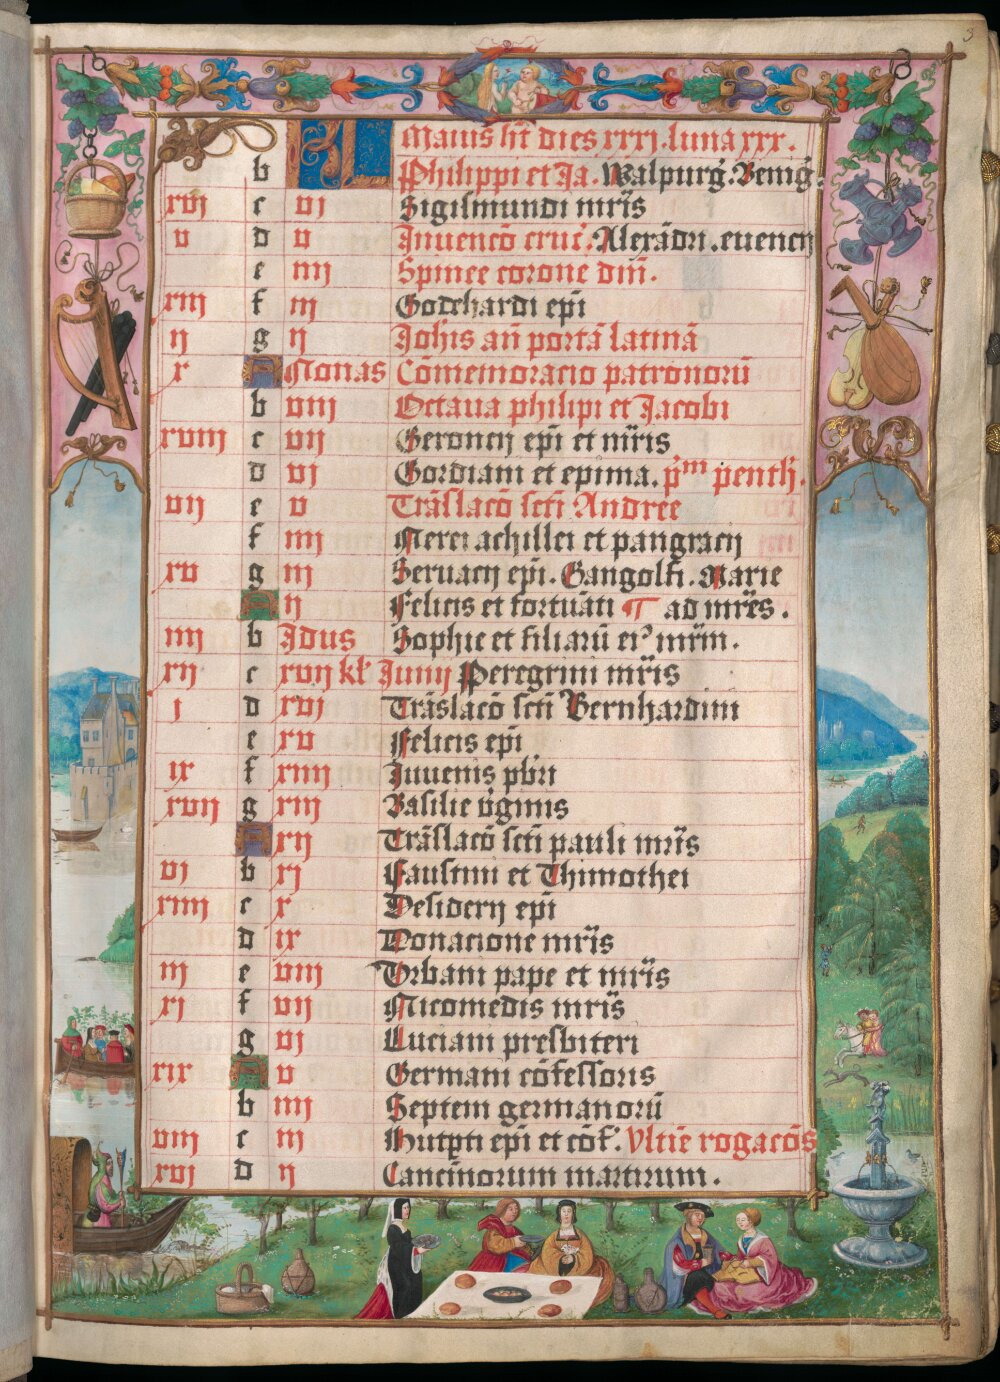 3
KL Maius ht̄ dies xxxj. luna xxx.
b Philippi et Ja. Walpurg̃. Benig̃.
xvj c vj Sigismundi mr̃is
v d v Inuencō cruc̃. Alexãdri. euencij
e iiij Spinee corone dñi.
xiij f iij Godehardi ep̄i
ij g ij Joh̄is an̄ portã latinã
x A Nonas Cōmemoracio patronorū
b viij Octaua philipi et Jacobi
xviij c vij Geroncij ep̄i et mr̃is
d vj Gordiani et epima. p̃m penth̃.
vij e v Trãslacō sc̄ti Andree
f iiij Nerei achillei et pangracij
xv g iij Seruacij ep̄i. Gangolfi. Marie
A ij Felicis et fortuãti ¶ ad mr̃es.
iiij b Jdus Sophie et filiarū eiꝰ mr̃m.
xij c xvij kł Junij Peregrini mr̃is
j d xvj Trãslacō sc̄ti Bernhardini
e xv Felicis ep̄i
ix f xiiij Juuenis pb̄ri
xvij g xiij Basilie v̄ginis
A xij Trãslacō sc̄ti pauli mr̃is
vj b xj Faustini et Thimothei
xiiij c x Desiderij ep̄i
d ix Donacione mr̃is
iij e viij Vrbani pape et mr̃is
xj f vij Nicomedis mr̃is
g vj Luciani presbiteri
xix A v Germani cōfessoris
b iiij Septem germanorū
viij c iij Hutp̱ti ep̄i et cōf. Vltīe rogacōs
xvj d ij Cancīnorum martirum.